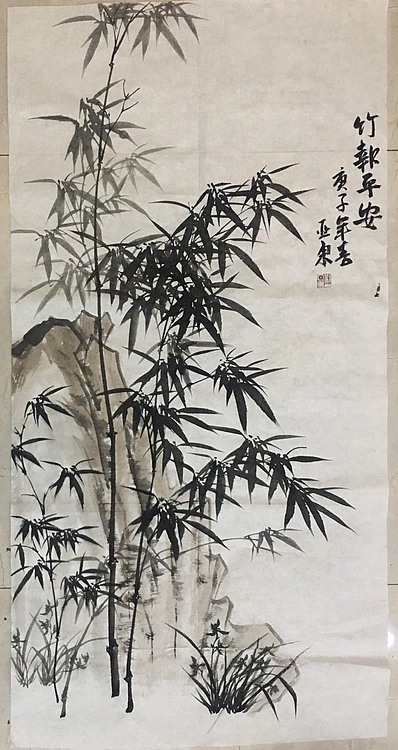 竹報平安
庚子年春
亚東